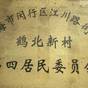 海市闵行区江川路街
鹤北新村
第四居民委员会